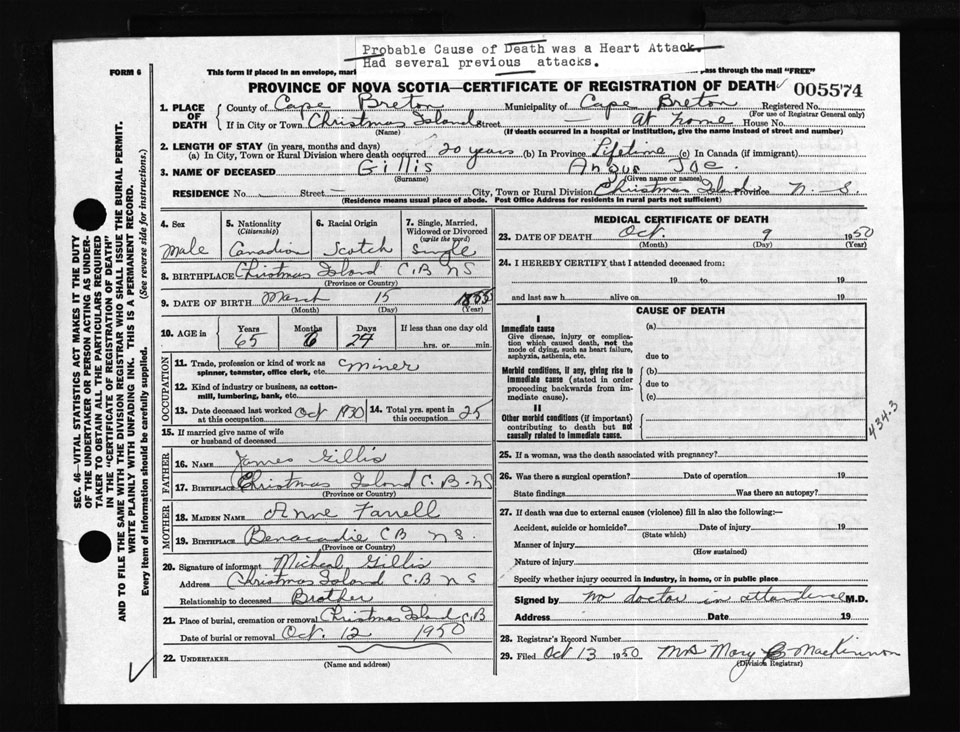 Probable Cause of Death was a Heart Attack.
Had several previous attacks.
FORM 6
This form if placed in an envelope, mar
pass through the mail "FREE"
PROVINCE OF NOVA SCOTIA—CERTIFICATE OF REGISTRATION OF DEATH 005574
1. PLACE OF DEATH County of Cape Breton Municipality of Cape Breton Registered No.
(For use of Registrar General only)
If in City or Town Christmas Island Street At home House No.
(Name) (If death occurred in a hospital or institution, give the name instead of street and number)
2. LENGTH OF STAY (in years, months and days)
(a) In City, Town or Rural Division where death occurred 20 years (b) In Province Lifetime (c) In Canada (if immigrant)
3. NAME OF DECEASED Gillis Angus Joe.
(Surname) (Given name or names)
RESIDENCE No. Street — City, Town or Rural Division Christmas Island Province N. S.
(Residence means usual place of abode. Post Office Address for residents in rural parts not sufficient)
4. Sex
Male
5. Nationality
(Citizenship)
Canadian
6. Racial Origin
Scotch
7. Single, Married,
Widowed or Divorced
(write the word)
Single
8. BIRTHPLACE Christmas Island C.B NS
(Province or Country)
9. DATE OF BIRTH March 15 1885
(Month) (Day) (Year)
10. AGE in Years Months Days If less than one day old
65 6 24 hrs. or min.
OCCUPATION
11. Trade, profession or kind of work as Miner
spinner, teamster, office clerk, etc.
12. Kind of industry or business, as cotton-
mill, lumbering, bank, etc.
13. Date deceased last worked Oct 1930 14. Total yrs. spent in 25
at this occupation this occupation
15. If married give name of wife
or husband of deceased
FATHER
16. NAME James Gillis
17. BIRTHPLACE Christmas Island C. B-NS
(Province or Country)
MOTHER
18. MAIDEN NAME Anne Farrell
19. BIRTHPLACE Benacadie CB NS.
(Province or Country)
20. Signature of informant Micheal Gillis
Address Christmas Island C.B N S
Relationship to deceased Brother
21. Place of burial, cremation or removal Christmas Island C.B
Date of burial or removal Oct. 12 1950
22. UNDERTAKER
(Name and address)
MEDICAL CERTIFICATE OF DEATH
23. DATE OF DEATH Oct. 9 1950
(Month) (Day) (Year)
24. I HEREBY CERTIFY that I attended deceased from:
19 to 19
and last saw h alive on 19
CAUSE OF DEATH
I
Immediate cause (a)
Give disease, injury or complica-
tion which caused death, not the
mode of dying, such as heart failure,
asphyxia, asthenia, etc. due to
Morbid conditions, if any, giving rise to (b)
immediate cause (stated in order due to
proceeding backwards from im-
mediate cause). (c)
II
Other morbid conditions (if important)
contributing to death but not
causally related to immediate cause.
434.3
25. If a woman, was the death associated with pregnancy?
26. Was there a surgical operation? Date of operation 19
State findings Was there an autopsy?
27. If death was due to external causes (violence) fill in also the following:—
Accident, suicide or homicide? Date of injury 19
(State which)
Manner of injury
(How sustained)
Nature of injury
Specify whether injury occurred in industry, in home, or in public place
Signed by no doctor in attendence M.D.
Address Date 19
28. Registrar's Record Number
29. Filed Oct 13 1950 Mrs Mary B MacKinnon
(Division Registrar)
SEC. 46—VITAL STATISTICS ACT MAKES IT THE DUTY
OF THE UNDERTAKER OR PERSON ACTING AS UNDER-
TAKER TO OBTAIN ALL THE PARTICULARS REQUIRED
IN THE "CERTIFICATE OF REGISTRATION OF DEATH"
AND TO FILE THE SAME WITH THE DIVISION REGISTRAR WHO SHALL ISSUE THE BURIAL PERMIT.
WRITE PLAINLY WITH UNFADING INK. THIS IS A PERMANENT RECORD.
Every item of information should be carefully supplied. (See reverse side for instructions.)